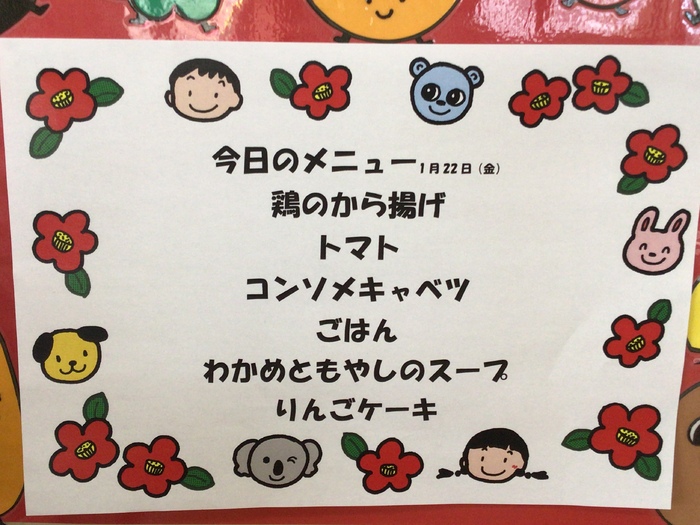 今日のメニュー1月22日(金)
鶏のから揚げ
トマト
コンソメキャベツ
ごはん
わかめともやしのスープ
りんごケーキ